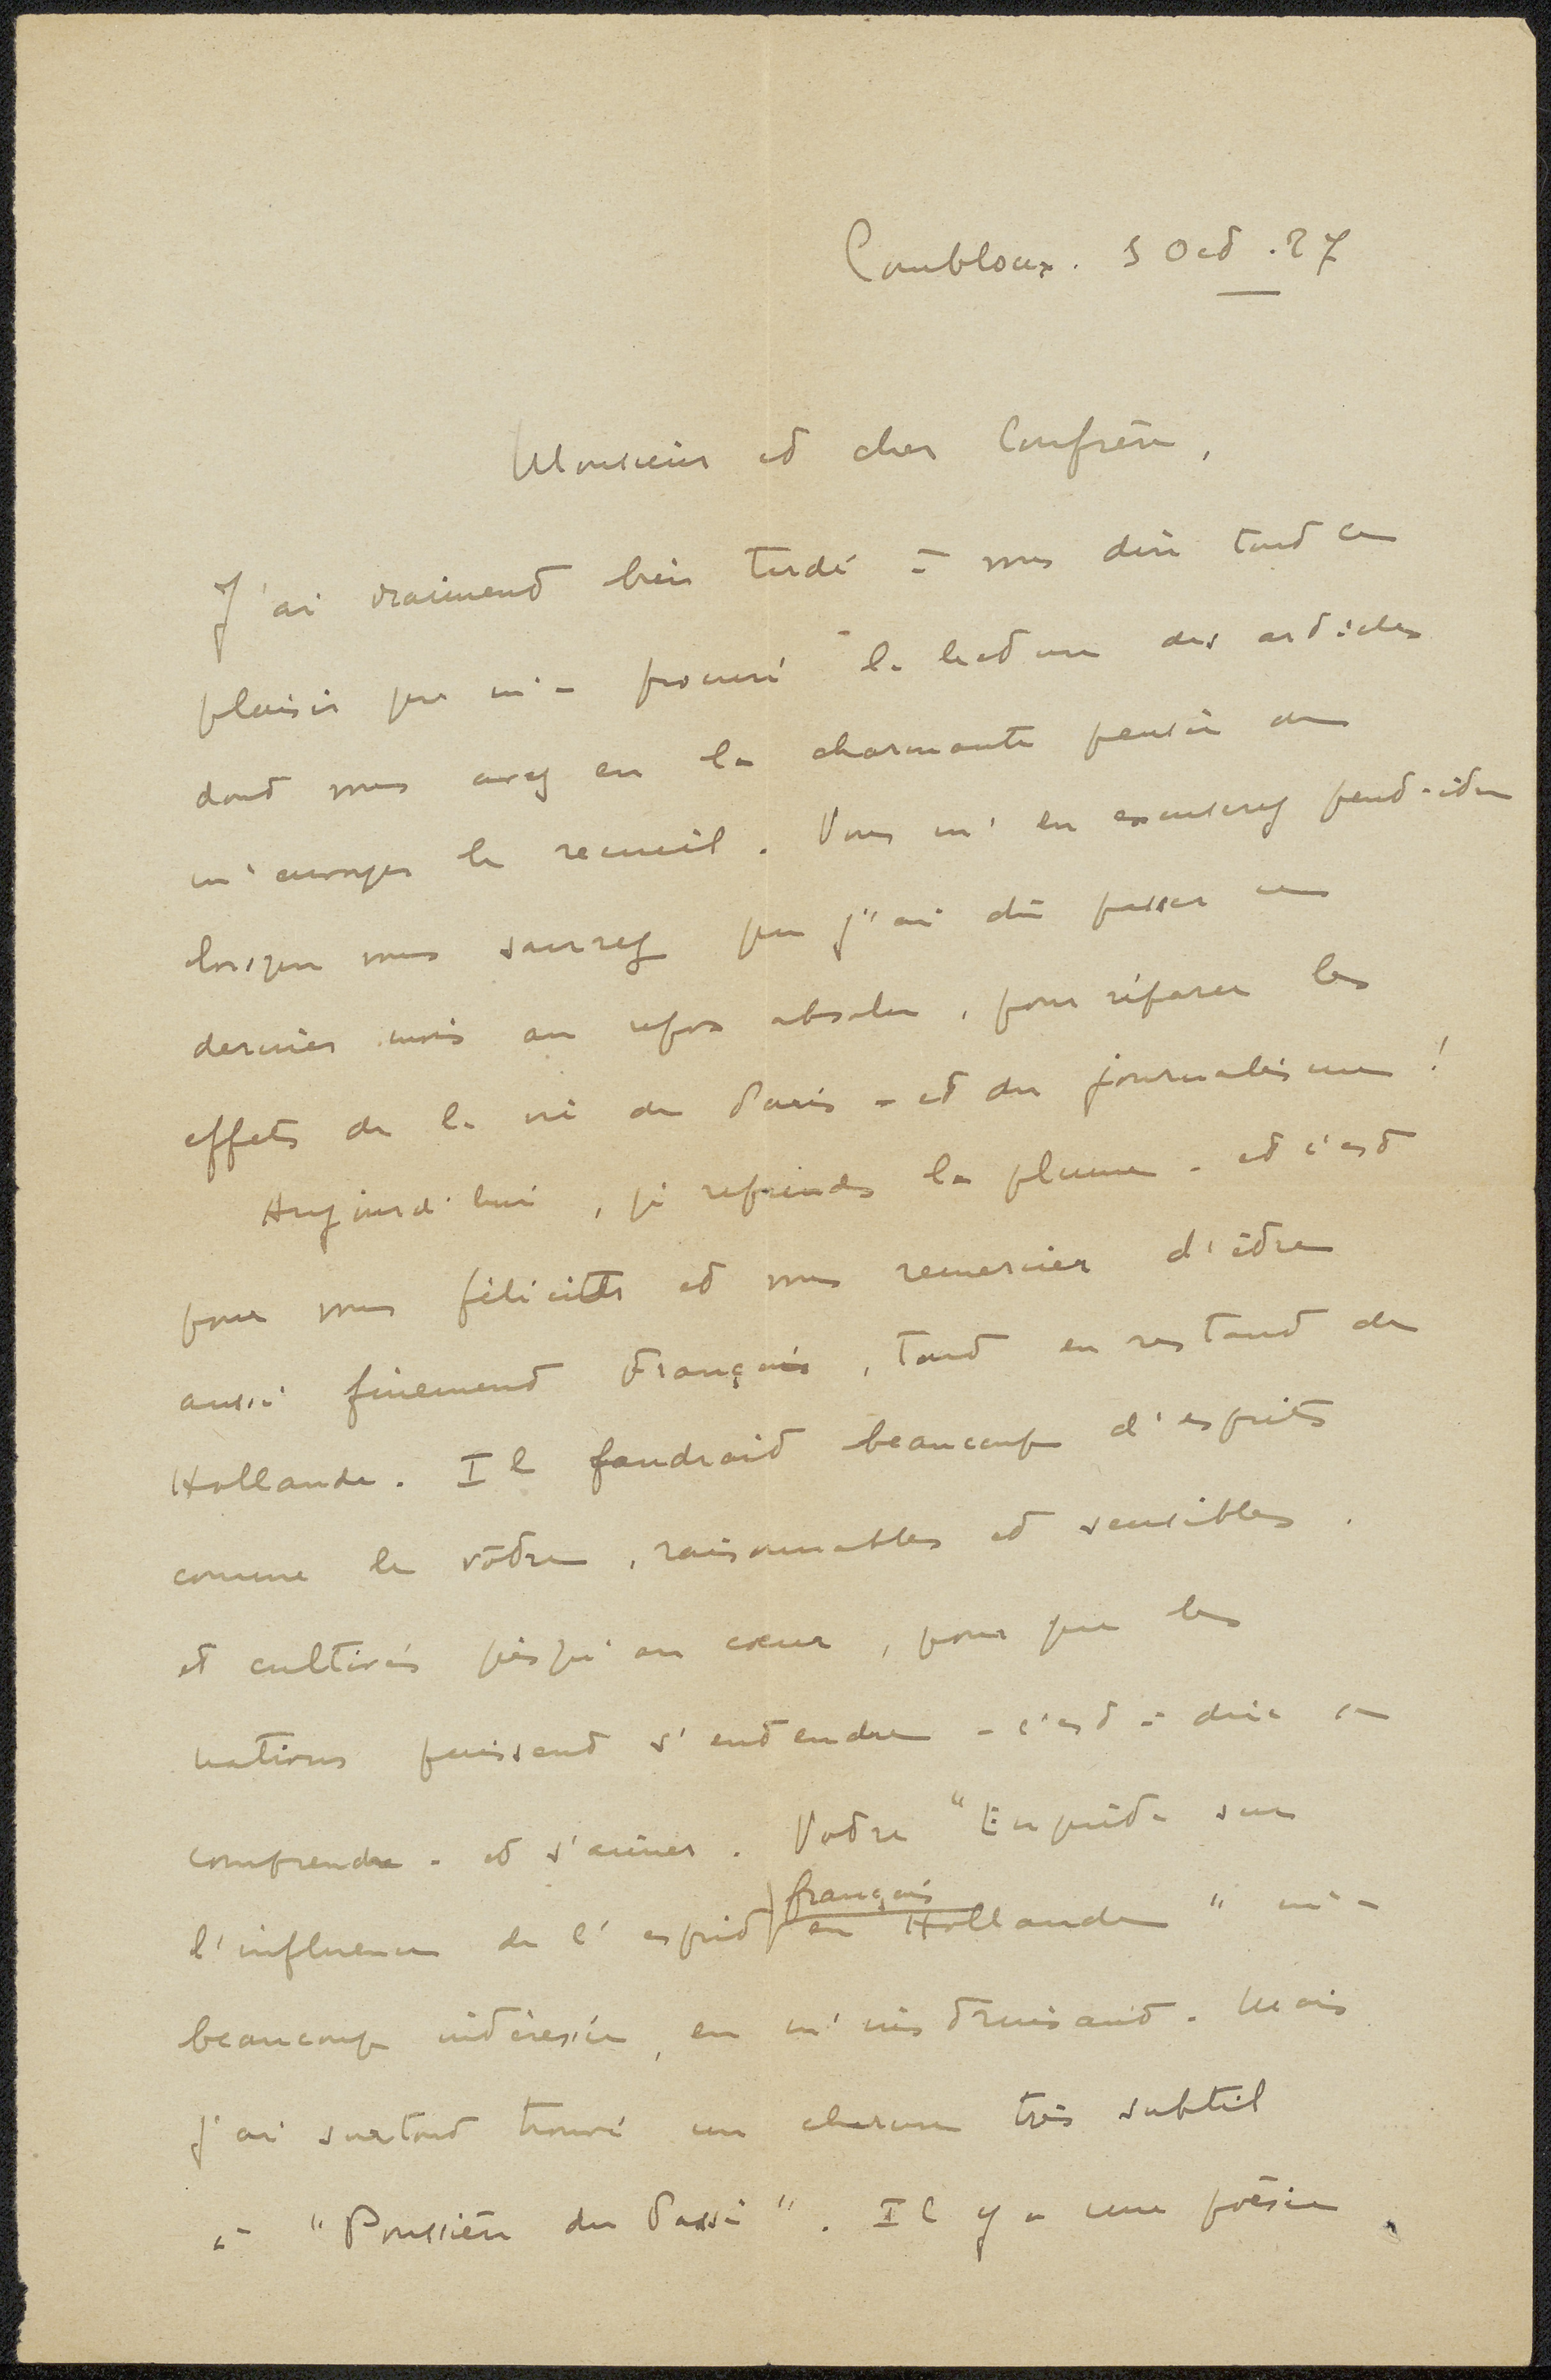 Combloux. 5 Oct. 27
Monsieur et cher Confrère,
J'ai vraiment bien tardé à vous dire tout le
plaisir que m'a procuré la lecture des articles
dont vous avez eu la charmante pensée de
m'envoyer le recueil. Vous m'en excuserez peut-être
lorsque vous saurez que j'ai dû passer un
dernier mois au repos absolu, pour réparer les
effets de la vie de Paris - et du journalisme !
Aujourd'hui, je reprends la plume - et c'est
pour vous féliciter et vous remercier d'être
aussi finement Français, tout en restant de
Hollande. Il faudrait beaucoup d'esprits
comme le vôtre, raisonnables et sensibles,
et cultivés jusqu'au cœur, pour que les
nations puissent s'entendre - c'est à dire se
comprendre - et s'aimer. Votre "Enquête sur
l'influence de l'esprit français en Hollande" m'a
beaucoup intéressée, en m'instruisant. Mais
j'ai surtout trouvé un charme très subtil
à "Poussière du Passé". Il y a une poésie